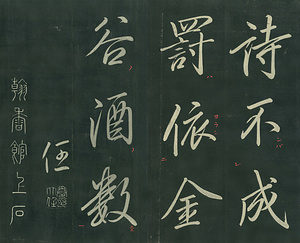 诗不成
罰依金
谷酒數
任
翰香館上石